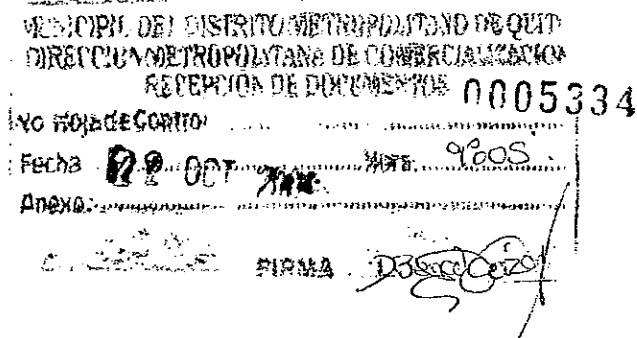 MUNICIPIO DEL DISTRITO METROPOLITANO DE QUITO
DIRECCION METROPOLITANA DE COMERCIALIZACION
RECEPCIÓN DE DOCUMENTOS 0005334
No Hoja de Control
Fecha 22 OCT Hora: 9h05
Anexo:
FIRMA